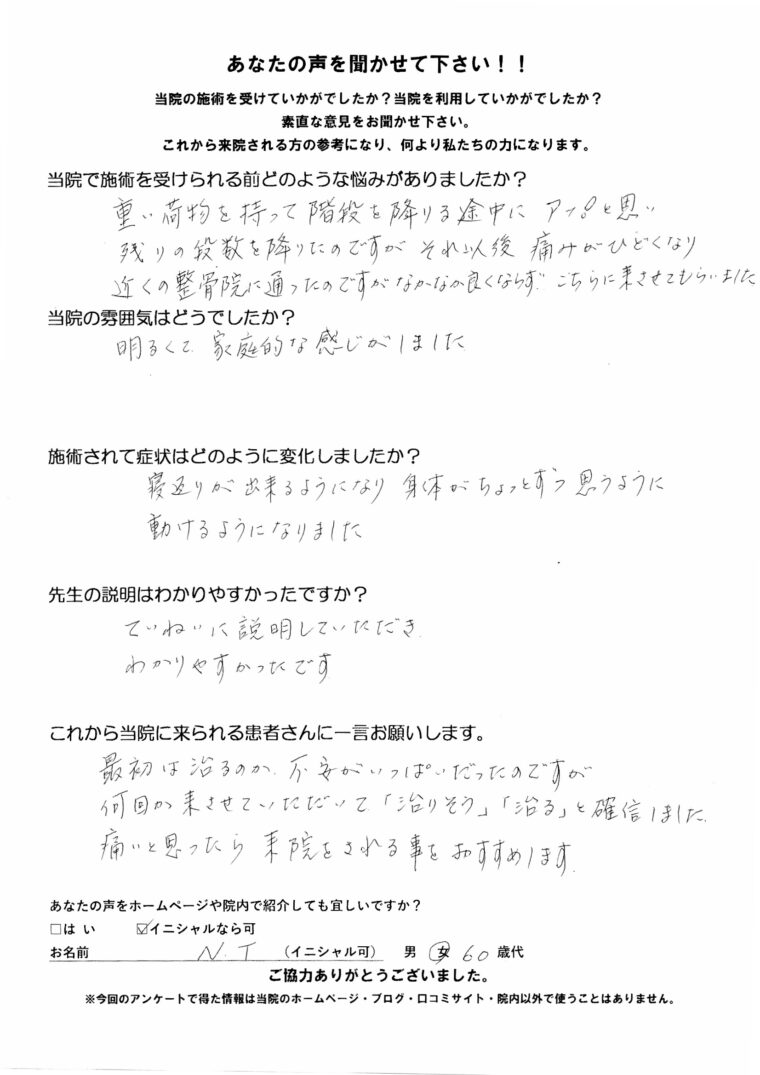 あなたの声を聞かせて下さい！！
当院の施術を受けていかがでしたか？当院を利用していかがでしたか？
素直な意見をお聞かせ下さい。
これから来院される方の参考になり、何より私たちの力になります。
当院で施術を受けられる前どのような悩みがありましたか？
重い荷物を持って階段を降りる途中に アッ！と思い
残りの段数を降りたのですが それ以後 痛みがひどくなり
近くの整骨院に通ったのですがなかなか良くならず こちらに来させてもらいました
当院の雰囲気はどうでしたか？
明るくて、家庭的な感じがしました
施術されて症状はどのように変化しましたか？
寝返りが出来るようになり 身体がちょっとずつ思うように
動けるようになりました
先生の説明はわかりやすかったですか？
ていねいに説明していただき、
わかりやすかったです
これから当院に来られる患者さんに一言お願いします。
最初は治るのか、不安がいっぱいだったのですが
何回か来させていただいて「治りそう」「治る」と確信しました。
痛いと思ったら 来院をされる事をおすすめします。
あなたの声をホームページや院内で紹介しても宜しいですか？
□は い ☑イニシャルなら可
お名前 N.T （イニシャル可） 男 女 60 歳代
ご協力ありがとうございました。
※今回のアンケートで得た情報は当院のホームページ・ブログ・口コミサイト・院内以外で使うことはありません。